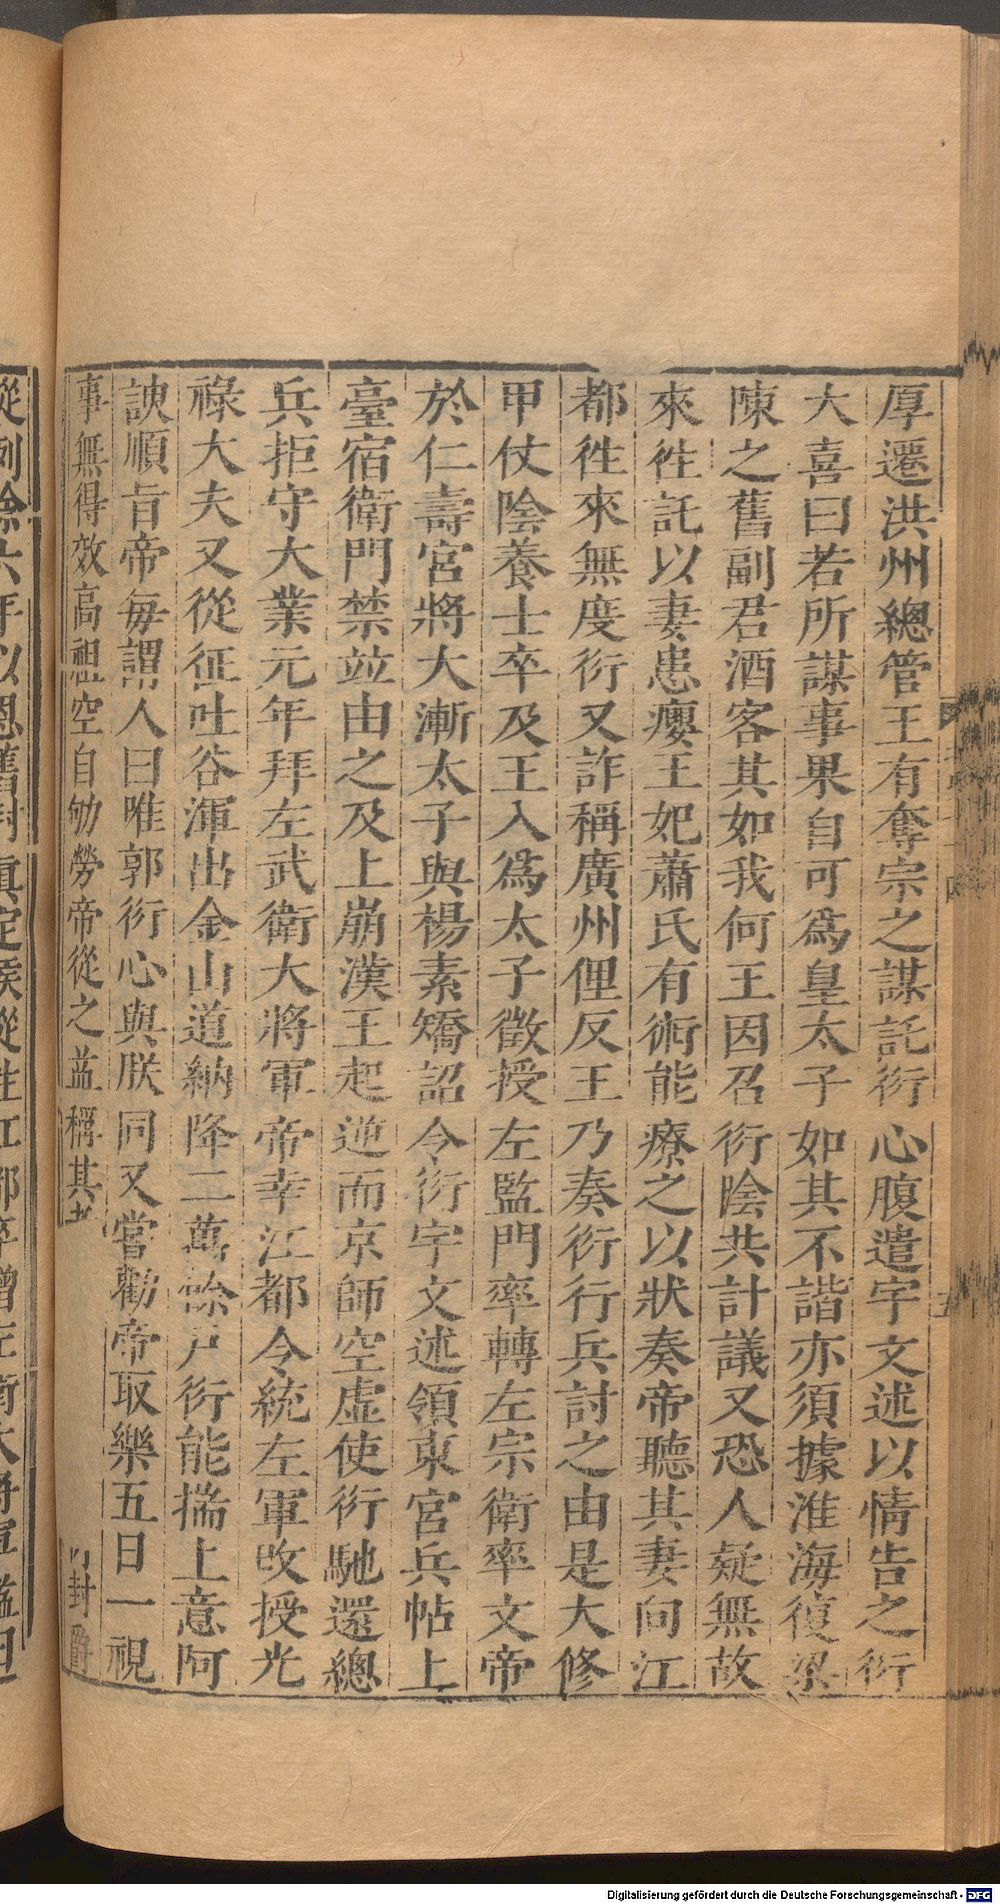 厚遷洪州總管王有奪宗之謀託衍心腹遣宇文述以情告之衍
大喜曰若所謀事果自可爲皇太子如其不諧亦須據淮海復梁
陳之舊副君酒客其如我何王因召衍陰共計議又恐人疑無故
來徃託以妻患癭王妃蕭氏有術能療之以狀奏帝聽其妻向江
都徃來無度衍又詐稱廣州俚反王乃奏衍行兵討之由是大修
甲仗陰養士卒及王入爲太子徵授左監門率轉左宗衛率文帝
於仁壽宮將大漸太子與楊素矯詔令衍宇文述領東宮兵帖上
臺宿衛門禁竝由之及上崩漢王起逆而京師空虛使衍馳還總
兵拒守大業元年拜左武衛大將軍帝幸江都令統左軍改授光
祿大夫又從征吐谷渾出金山道納降二萬餘戸衍能揣上意阿
諛順旨帝每謂人曰唯郭衍心與朕同又嘗勸帝取樂五日一視
事無得效高祖空自劬勞帝從之益稱其孝 封爵
從例除六年以恩舊封真定侯從往江都卒贈左衛大將軍諡曰
Digitalisierung gefördert durch die Deutsche Forschungsgemeinschaft - DFG